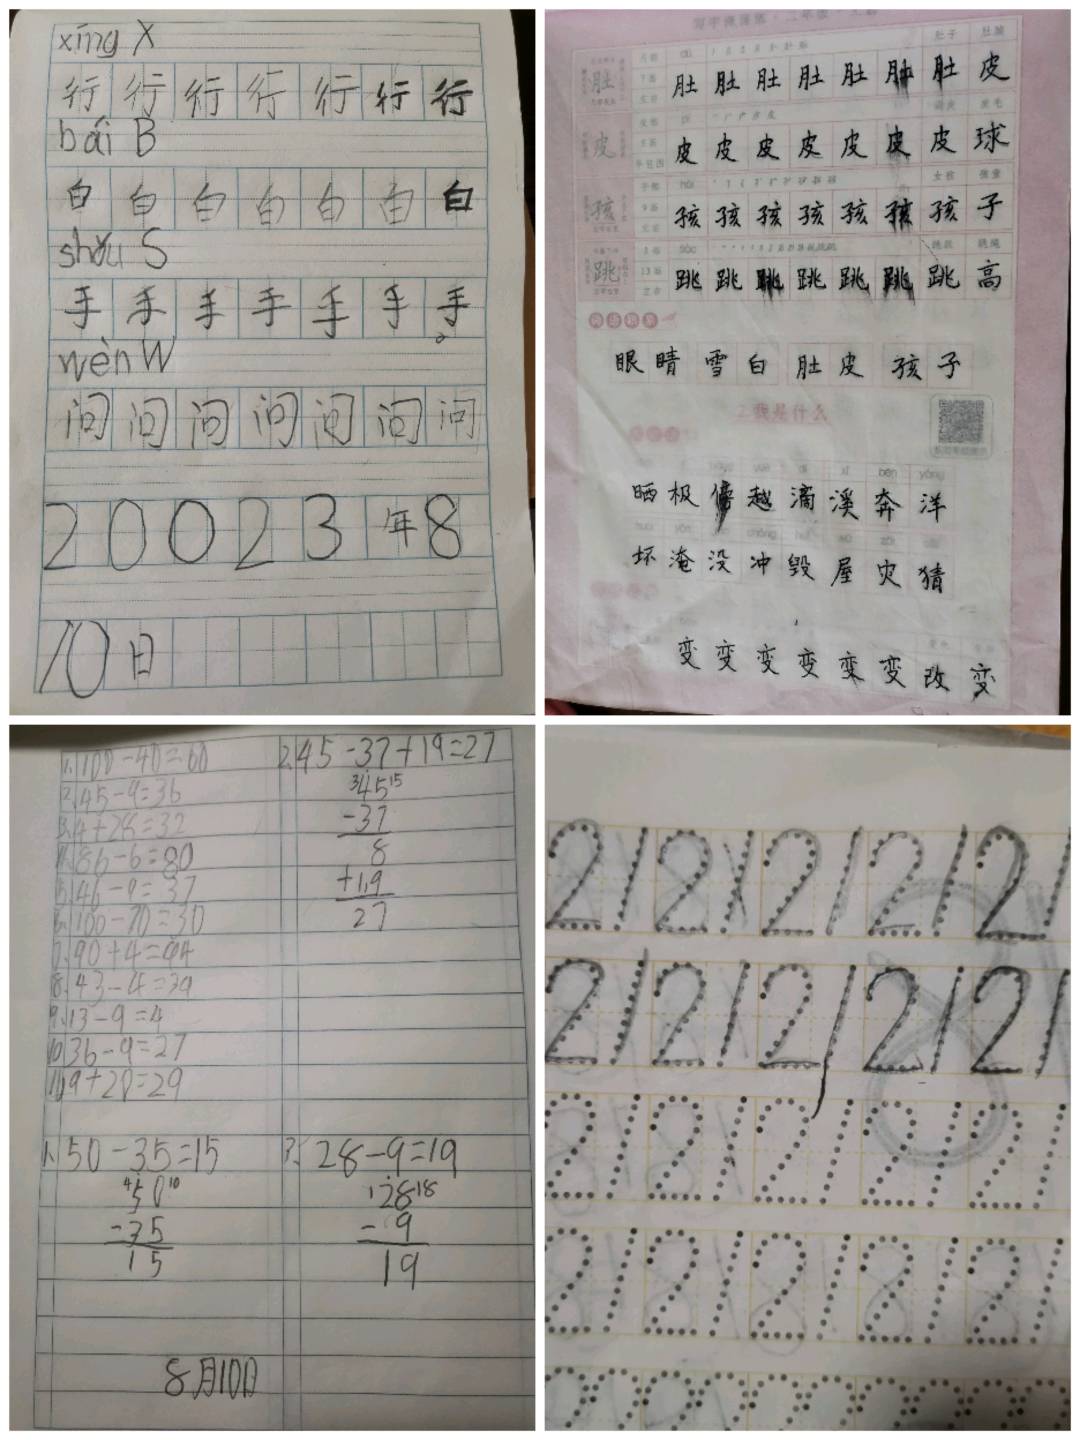 xíng X
行 行 行 行 行 行 行
bái B
白 白 白 白 白 白 白
shǒu S
手 手 手 手 手 手 手
wèn W
问 问 问 问 问 问 问
2 0 0 2 3 年 8
10 日
肚子 肚脐
肚 肚 肚 肚 肚 肚 肚 肚 皮
皮 皮 皮 皮 皮 皮 皮 皮 球
孩 孩 孩 孩 孩 孩 孩 孩 子
跳 跳 跳 跳 跳 跳 跳 跳 高
眼 睛 雪 白 肚 皮 孩 子
2.我是什么
晒 极 傍 越 滴 溪 奔 洋
坏 淹 没 冲 毁 屋 灾 猜
变 变 变 变 变 变 改 变
1.100-40=60
2.45-9=36
3.4+28=32
4.86-6=80
5.46-9=37
6.100-70=30
7.90+4=94
8.43-4=39
9.13-9=4
10.36-9=27
11.9+20=29
1.50-35=15
4 50 10
-35
15
8月10日
2.45-37+19=27
3 45 15
-37
8
+19
27
3.28-9=19
1 28 18
-9
19
21 21 21 21 21
21 21 21 21 21
21 21 21 21 21
21 21 21 21 21